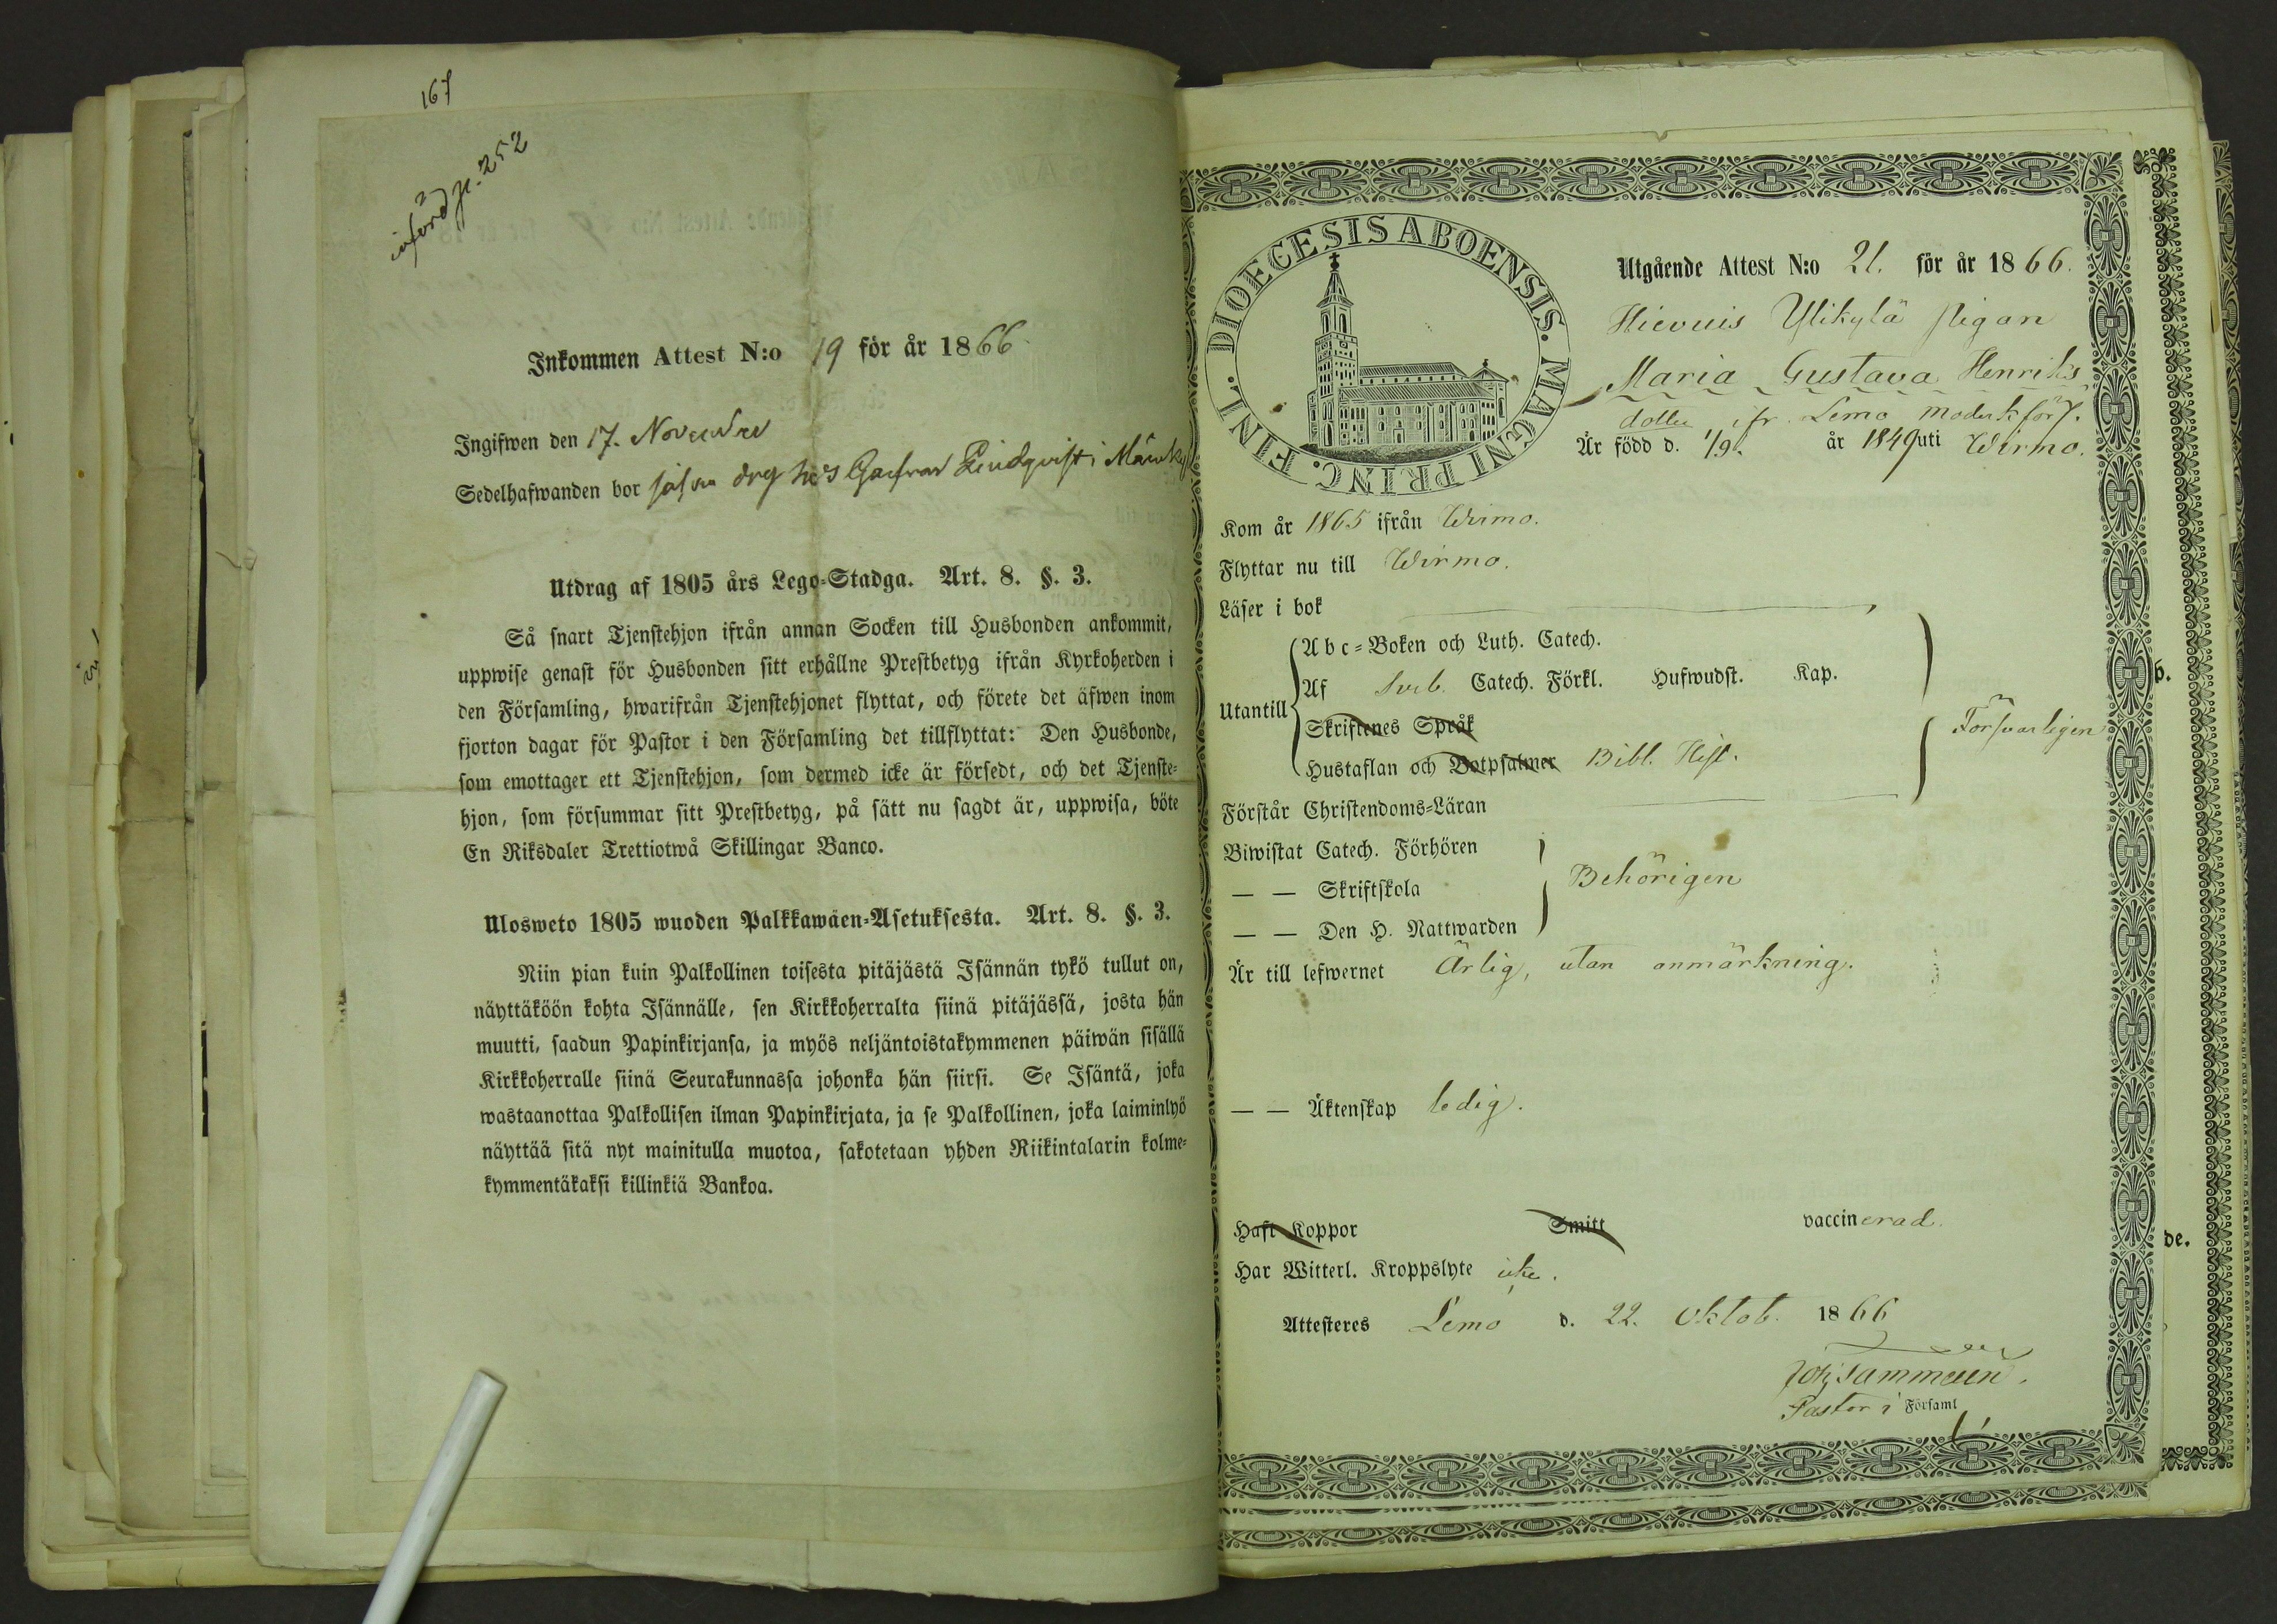 167
införd p. 252
Inkommen Attest N:o 19 för år 1866
Ingifwen den 17. November
Sedelhafwanden bor såsom drg hos Garfvar Lindqvist i
Utdrag af 1805 års Lego-Stadga. Art. 8. §. 3.
Så snart Tjenstehjon ifrån annan Socken till Husbonden ankommit,
uppwise genast för Husbonden sitt erhållne Prestbetyg ifrån Kyrkoherden i
den Församling, hwarifrån Tjenstehjonet flyttat, och förete det äfwen inom
fjorton dagar för Pastor i den Församling det tillflyttat: Den Husbonde,
som emottager ett Tjenstehjon, som dermed icke är försedt, och det Tjenste-
hjon, som försummar sitt Prestbetyg, på sätt nu sagdt är, uppwisa, böte
En Riksdaler Trettiotwå Skillingar Banco.
Ulosweto 1805 wuoden Palkkawäen-Asetuksesta. Art. 8. §. 3.
Niin pian kuin Palkollinen toisesta pitäjästä Isännän tykö tullut on,
näyttäköön kohta Isännälle, sen Kirkkoherralta siinä pitäjässä, josta hän
muutti, saadun Papinkirjansa, ja myös neljäntoistakymmenen päiwän sisällä
Kirkkoherralle siinä Seurakunnassa johonka hän siirsi. Se Isäntä, joka
wastaanottaa Palkollisen ilman Papinkirjata, ja se Palkollinen, joka laiminlyö
näyttää sitä nyt mainitulla muotoa, sakotetaan yhden Riikintalarin kolme-
kymmentäkaksi killinkiä Bankoa.
DIOECESIS ABOENSIS. MAGNI PRINC. FINL.
Utgående Attest N:o 21. för år 1866.
Hievuis Ylikylä pigan
Maria Gustava Henriks
dotter ifr. Lemo moderk förs.
Är född d. 1/9. år 1849 uti Wirmo.
Kom år 1865 ifrån Wirmo.
Flyttar nu till Wirmo.
Läser i bok
Utantill
Abc-Boken och Luth. Catech.
Af Sveb. Catech. Förkl. Hufwudst. Kap.
Skriftenes Språk
Hustaflan och Botpsalmer Bibl. Hist.
Försvarligen
Förstår Christendoms-Läran
Biwistat Catech. Förhören
— — Skriftskola
Behörigen
— — Den H. Nattwarden
Är till lefwernet Ärlig, utan anmärkning.
— — Äktenskap ledig.
Haft Koppor Smitt vaccinerad.
Har Witterl. Kroppslyte icke.
Attesteres Lemo d. 22. Oktob. 1866
Pastor i Församl
b.
de.